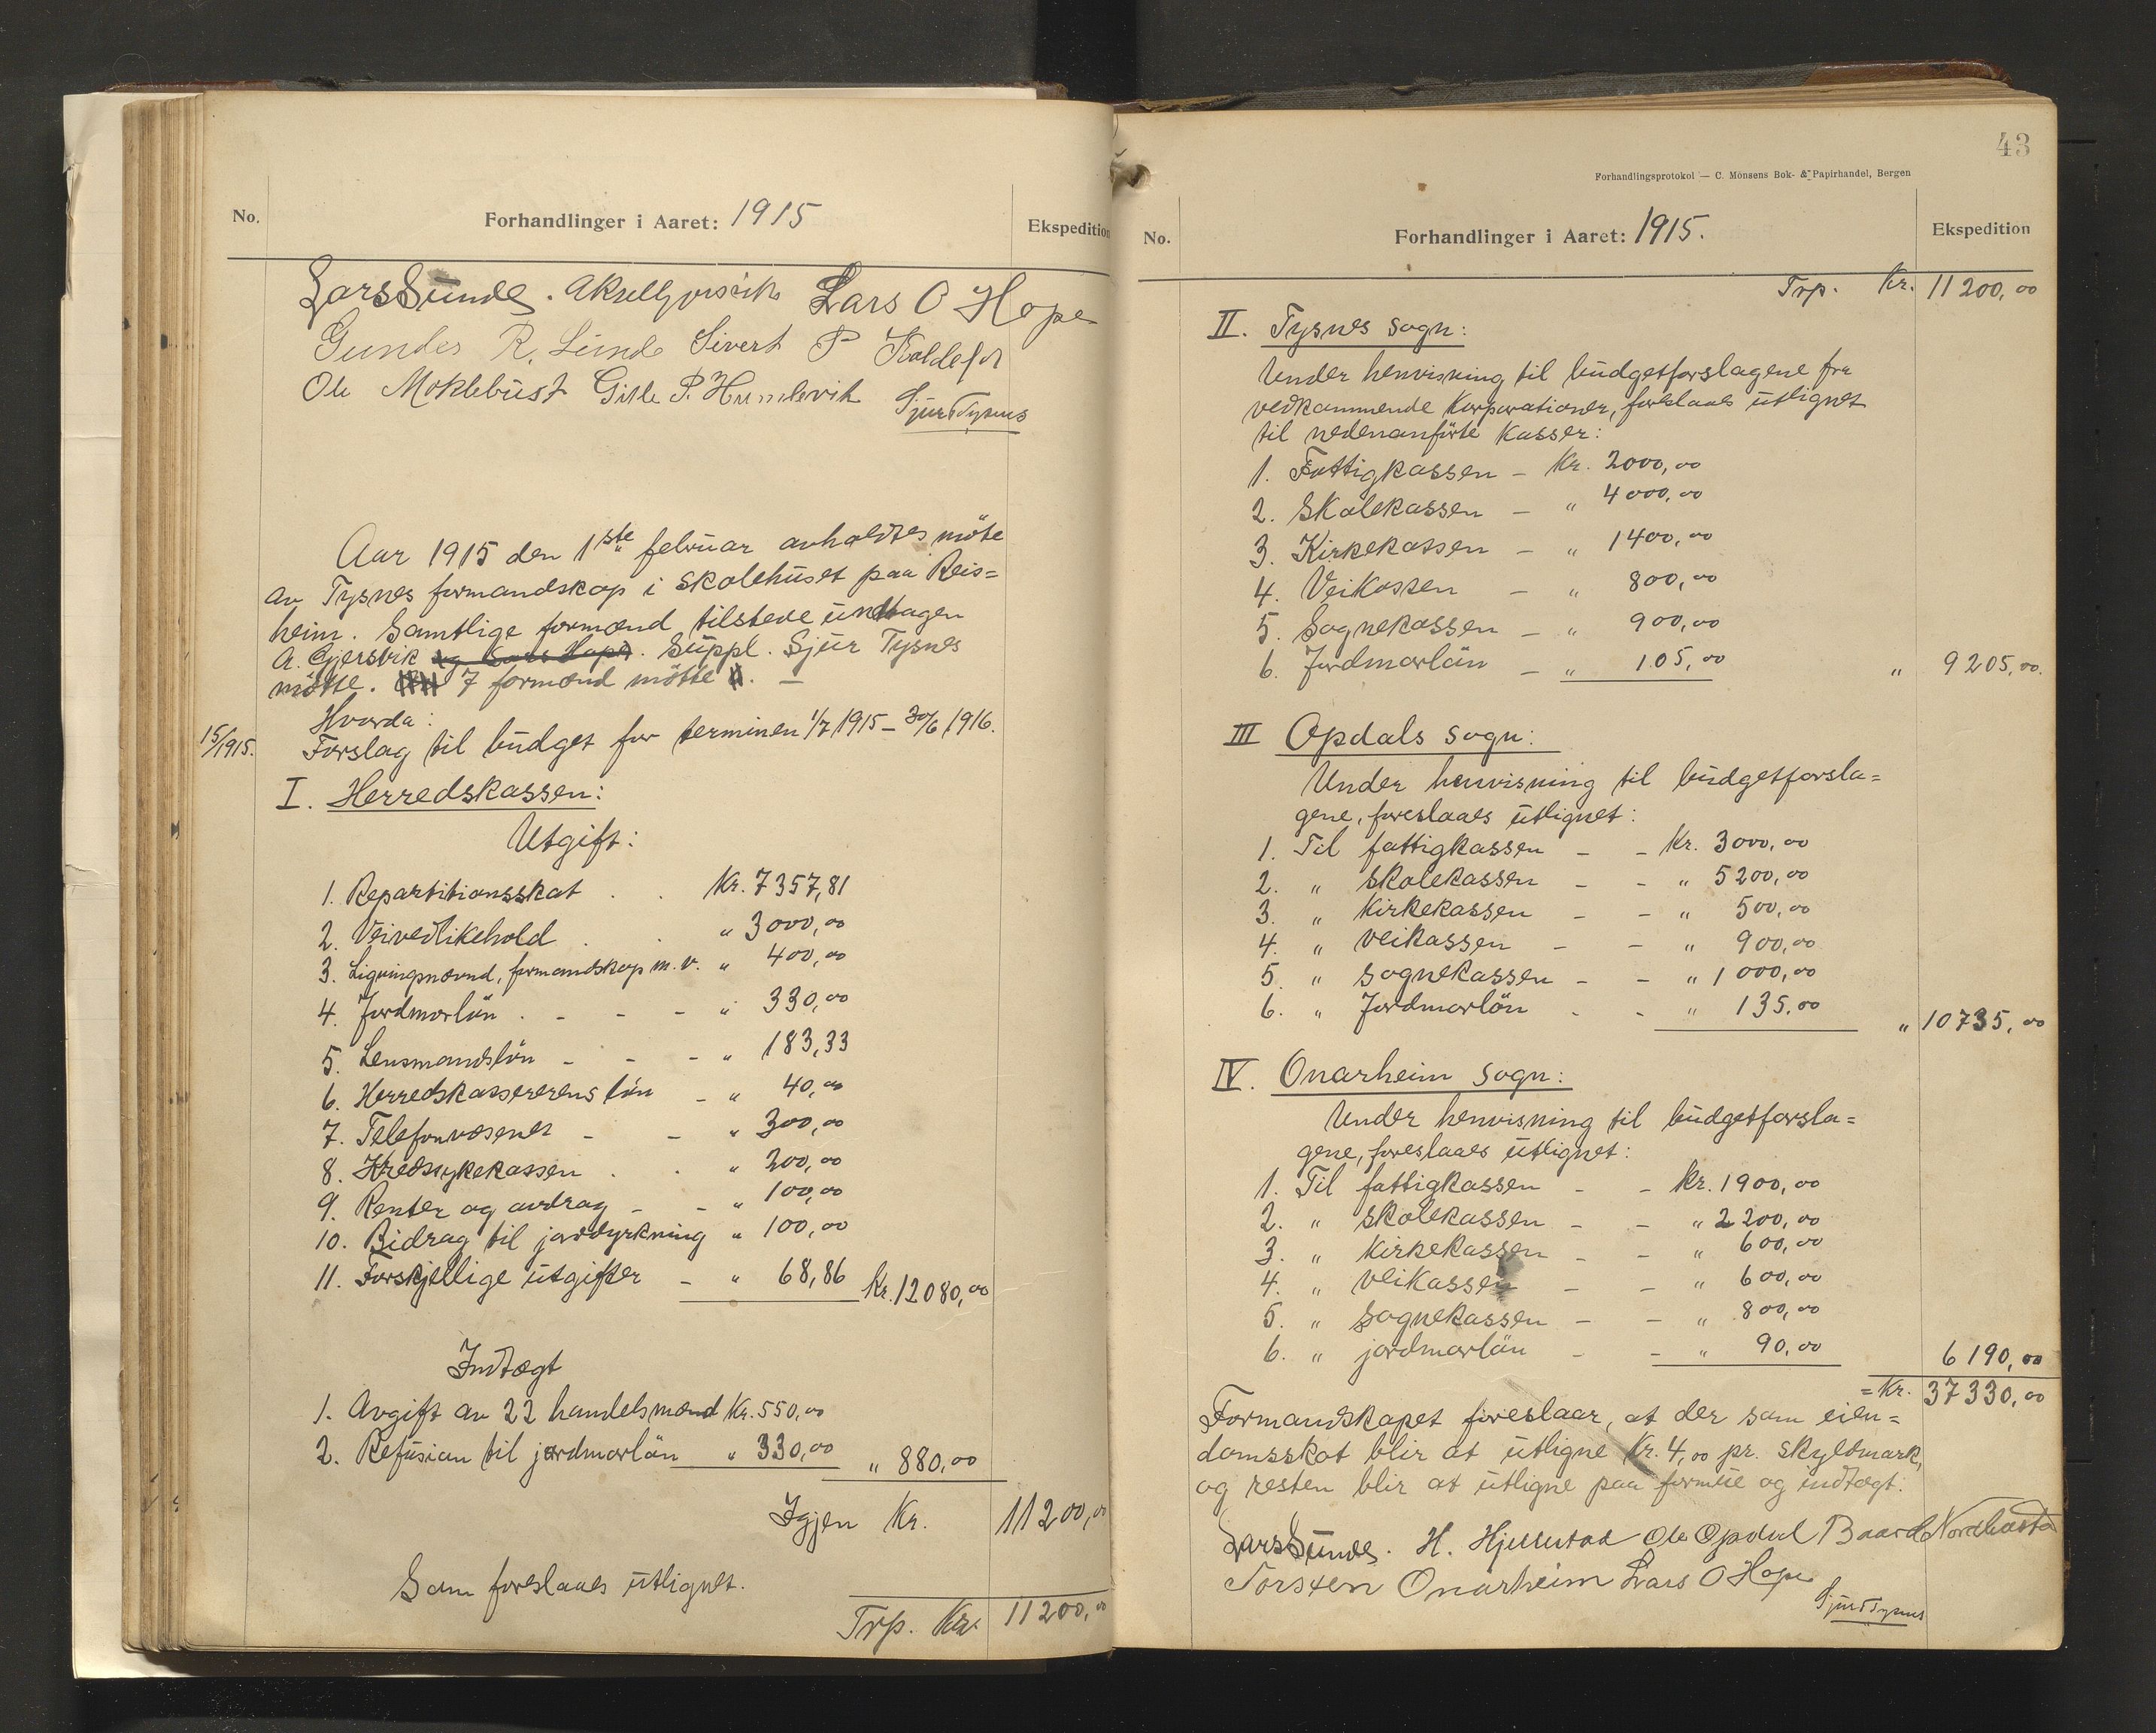 No.
Forhandlinger i Aaret: 1915
Ekspedition
Lars Sunde. Aksel Gjersvik Lars O Hope
Gunder R. Lunde Sivert P
Ole Moklebust Gitle P. Humlevik Sjur Tysnes
Aar 1915 den 1ste februar avholdtes möte
av Tysnes formandskap i skolehuset paa Reis=
heim. Samtlige formænd tilstede undtagen
A. Gjersvik og Lars Hope. Suppl. Sjur Tysnes
mötte. 7 formænd mötte. —
Hvorda:
15/1915. Forslag til budget for terminen 1/7 1915 – 30/6 1916.
I. Herredskassen:
Utgift:
1. Repartitionsskat . . Kr. 7357,81
2. Veivedlikehold . . " 3000,00
3. Ligningsnævnd, formandskap m. v. " 400,00
4. Jordmorlön . - - - " 330,00
5. Lensmandslön - - - " 183,33
6. Herredskassererens lön - " 40,00
7. Telefonvæsenet - - " 300,00
8. Kredssykekassen . . " 200,00
9. Renter og avdrag - - " 100,00
10. Bidrag til jorddyrkning " 100,00
11. Forskjellige utgifter - " 68,86 Kr. 12080,00
Indtægt
1. Avgift av 22 handelsmænd Kr. 550,00
2. Refusion til jordmorlön " 330,00 " 880,00
Igjen Kr. 11200,00
Som foreslaaes utlignet.
Trp. Kr. 11200,00
43
Forhandlingsprotokol — C. Mönsens Bok- & Papirhandel, Bergen
No.
Forhandlinger i Aaret: 1915.
Ekspedition
Trp. Kr. 11200,00
II. Tysnes sogn:
Under henvisning til budgetforslagene fra
vedkommende korporationer, foreslaaes utlignet
til nedenanförte kasser:
1. Fattigkassen – Kr. 2000,00
2. Skolekassen – " 4000,00
3. Kirkekassen – " 1400,00
4. Veikassen – " 800,00
5. Sognekassen – " 900,00
6. Jordmorlön – " 105,00 " 9205,00.
III Opdals sogn:
Under henvisning til budgetforsla=
gene, foreslaaes utlignet:
1. Til fattigkassen - - Kr. 3000,00
2. " skolekassen - - " 5200,00
3. " Kirkekassen - - " 500,00
4. " veikassen - - " 900,00
5. " sognekassen - - " 1000,00
6. " Jordmorlön - - " 135,00 " 10735,00
IV. Onarheim sogn:
Under henvisning til budgetforsla=
gene, foreslaaes utlignet:
1. Til fattigkassen - - Kr. 1900,00
2. " skolekassen - - " 2200,00
3. " kirkekassen - - " 600,00
4. " veikassen - - " 600,00
5. " sognekassen - - " 800,00
6. " jordmorlön - - " 90,00 6190,00
= Kr. 37330,00
Formandskapet foreslaar, at der som eien=
domsskat blir at utligne Kr. 4,00 pr. skyldmark,
og resten blir at utligne paa formue og indtægt.
Lars Sunde. H. Hjellestad Ole Opdal Baard Nordhusta
Torsten Onarheim Lars O Hope
Sjur Tysnes